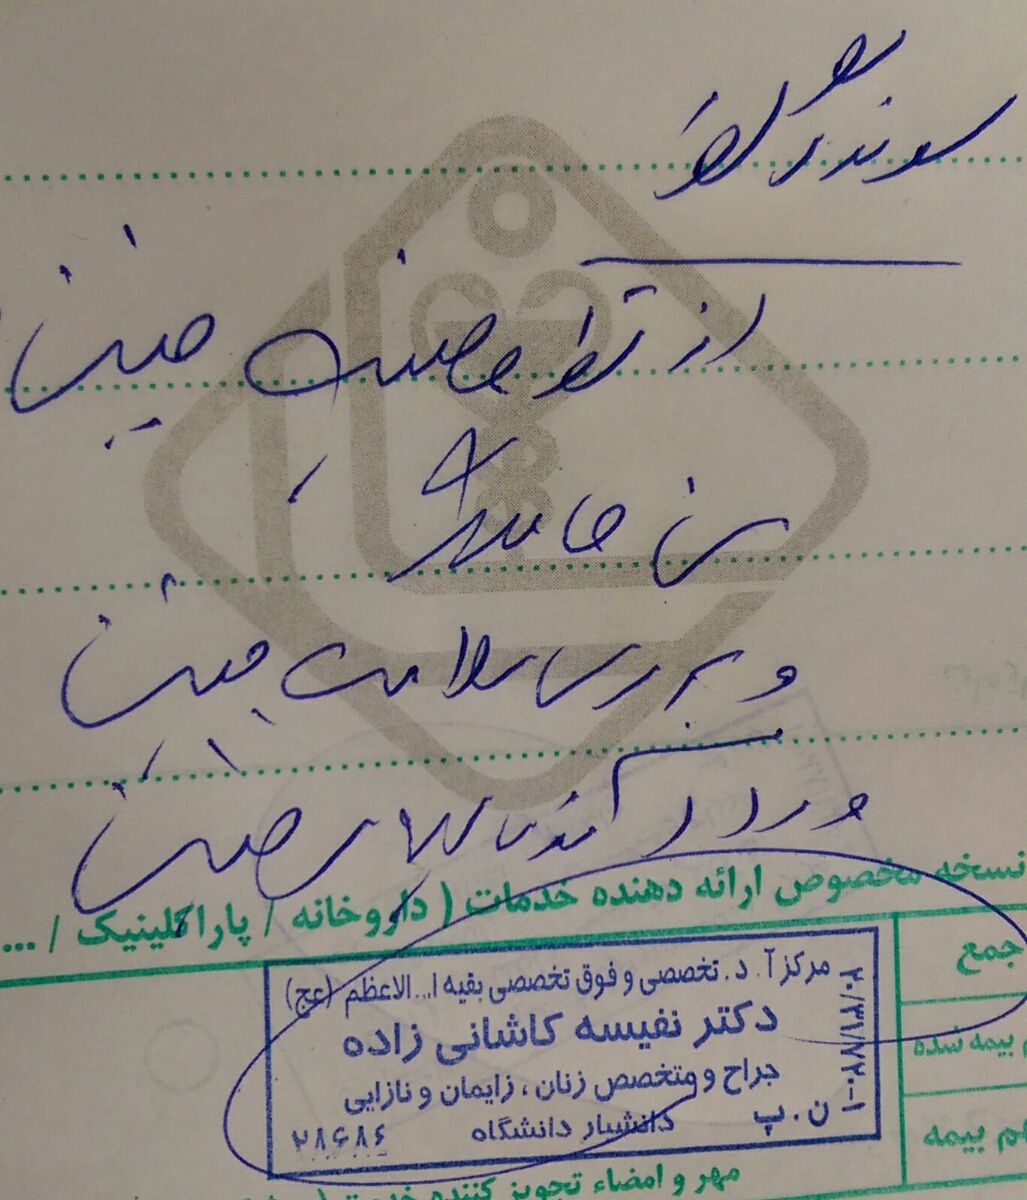 سونوگرافی
از نظر وضعیت جنین
سن حاملگی
و بررسی سلامت جنین
و رد آنومالیهای جنین
نسخه مخصوص ارائه دهنده خدمات ( داروخانه / پاراکلینیک / ...
جمع
بیمه شده
بیمه
مرکز آ. د. تخصصی و فوق تخصصی بقیه ا... الاعظم (عج)
دکتر نفیسه کاشانی زاده
جراح و متخصص زنان، زایمان و نازایی
دانشیار دانشگاه
ن. پ
۲۸۶۸۴
مهر و امضاء تجویز کننده خدمت